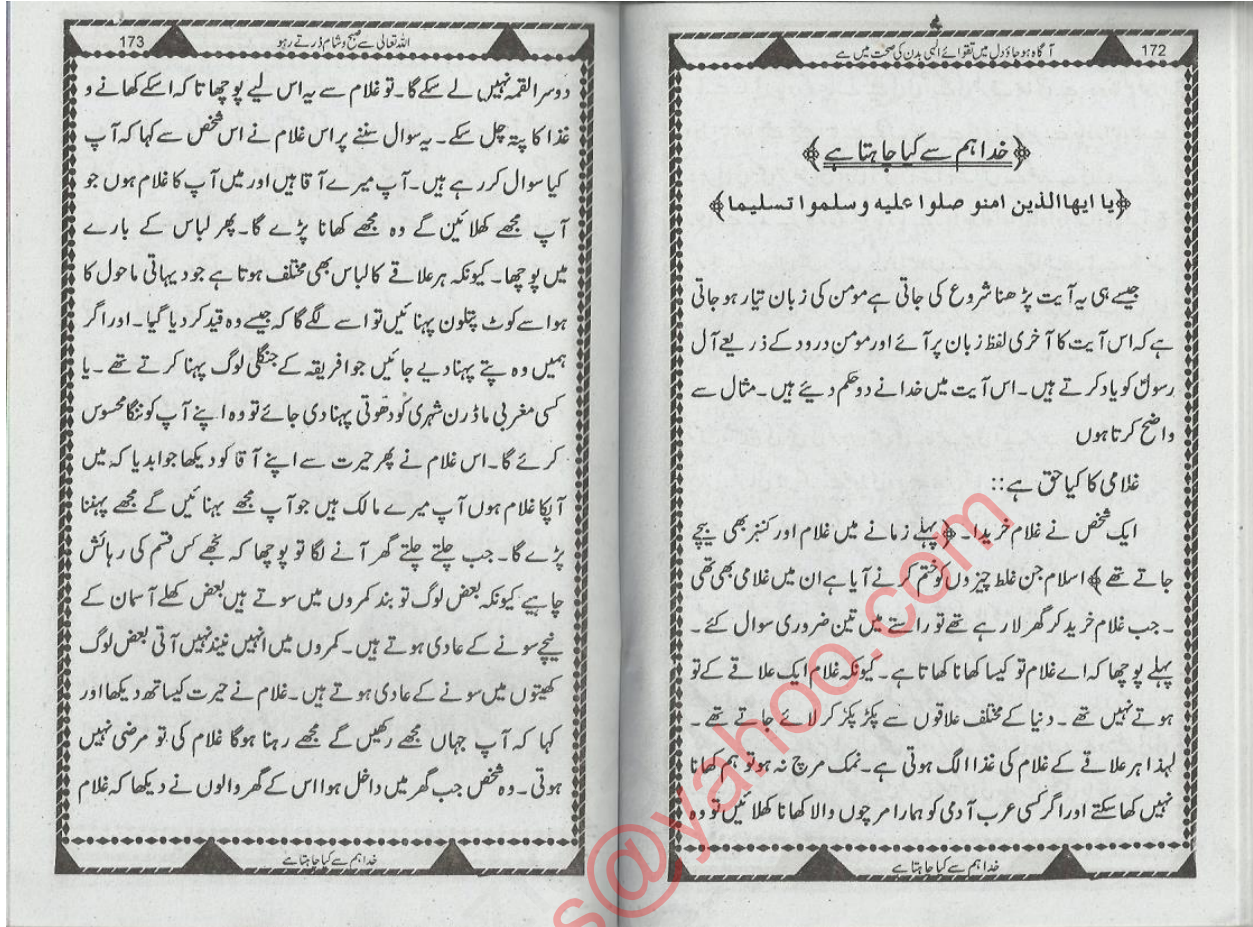 172
آگاہ ہو جاؤ دل میں تقوائے الٰہی بدن کی صحت میں ہے
﴿خدا ہم سے کیا چاہتا ہے﴾
﴿یا ایھا الذین امنو صلوا علیه وسلموا تسلیما﴾
جیسے ہی یہ آیت پڑھنا شروع کی جاتی ہے مومن کی زبان تیار ہو جاتی
ہے کہ اس آیت کا آخری لفظ زبان پر آئے اور مومن درود کے ذریعے آل
رسولؐ کو یاد کرتے ہیں۔ اس آیت میں خدا نے دو حکم دیئے ہیں۔ مثال سے
واضح کرتا ہوں
غلامی کا کیا حق ہے::
ایک شخص نے غلام خریدا۔ ﴿پہلے زمانے میں غلام اور کنیز بھی بیچے
جاتے تھے﴾ اسلام جن غلط چیزوں کو ختم کرنے آیا ہے ان میں غلامی بھی تھی
۔ جب غلام خرید کر گھر لا رہے تھے تو راستے میں تین ضروری سوال کئے۔
پہلے پوچھا کہ اے غلام تو کیسا کھانا کھاتا ہے۔ کیونکہ غلام ایک علاقے کے تو
ہوتے نہیں تھے۔ دنیا کے مختلف علاقوں سے پکڑ پکڑ کر لائے جاتے تھے۔
لہذا ہر علاقے کے غلام کی غذا الگ ہوتی ہے۔ نمک مرچ نہ ہو تو ہم کھانا
نہیں کھا سکتے اور اگر کسی عرب آدمی کو ہمارا مرچوں والا کھانا کھلائیں تو وہ
خدا ہم سے کیا چاہتا ہے
173
اللہ تعالیٰ سے صبح و شام ڈرتے رہو
دوسرا لقمہ نہیں لے سکے گا۔ تو غلام سے یہ اس لیے پوچھا تا کہ اسکے کھانے و
غذا کا پتہ چل سکے۔ یہ سوال سننے پر اس غلام نے اس شخص سے کہا کہ آپ
کیا سوال کر رہے ہیں۔ آپ میرے آقا ہیں اور میں آپ کا غلام ہوں جو
آپ مجھے کھلائیں گے وہ مجھے کھانا پڑے گا۔ پھر لباس کے بارے
میں پوچھا۔ کیونکہ ہر علاقے کا لباس بھی مختلف ہوتا ہے جو دیہاتی ماحول کا
ہو اسے کوٹ پتلون پہنائیں تو اسے لگے گا کہ جیسے وہ قید کر دیا گیا۔ اور اگر
ہمیں وہ پتے پہنا دیے جائیں جو افریقہ کے جنگلی لوگ پہنا کرتے تھے۔ یا
کسی مغربی ماڈرن شہری کو دھوتی پہنا دی جائے تو وہ اپنے آپ کو ننگا محسوس
کرے گا۔ اس غلام نے پھر حیرت سے اپنے آقا کو دیکھا جوابدیا کہ میں
آپکا غلام ہوں آپ میرے مالک ہیں جو آپ مجھے پہنائیں گے مجھے پہننا
پڑے گا۔ جب چلتے چلتے گھر آنے لگا تو پوچھا کہ تجھے کس قسم کی رہائش
چاہیے کیونکہ بعض لوگ تو بند کمروں میں سوتے ہیں بعض کھلے آسمان کے
نیچے سونے کے عادی ہوتے ہیں۔ کمروں میں انہیں نیند نہیں آتی بعض لوگ
کھیتوں میں سونے کے عادی ہوتے ہیں۔ غلام نے حیرت کیساتھ دیکھا اور
کہا کہ آپ جہاں مجھے رکھیں گے مجھے رہنا ہوگا غلام کی تو مرضی نہیں
ہوتی۔ وہ شخص جب گھر میں داخل ہوا اس کے گھر والوں نے دیکھا کہ غلام
خدا ہم سے کیا چاہتا ہے
s@yahoo.com